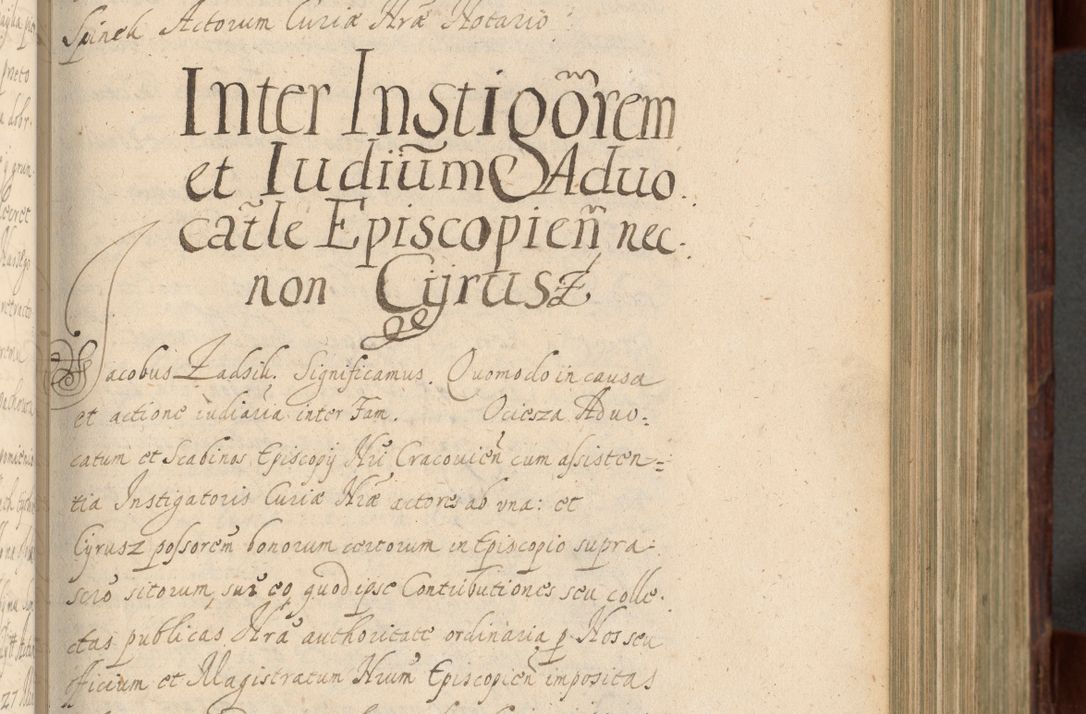 Spinek Actorum Curiæ Nr̃æ Notario
Inter Instigõrem
et Iudiũm Aduo
cat̃le Episcopieñ nec.
non Cyrusz
Jacobus Zadsik. Significamus. Quomodo in causa
et actione iudiaria inter Fam. Ociesza Aduo-
catum et Scabinos Episcopÿ Nr̃i Cracouieñ cum assisten-
tia Instigatoris Curiæ Nr̃æ actores ab vna: et
Cyrusz possorem bonorum certorum in Episcopio supra-
scr̃o sitorum, sup̃ eo, quod ipse Contributiones seu colle-
ctas publicas Nr̃a authoritate ordinaria p Nos seu
officium et Magistratum Nr̃um Episcopieñ impositas